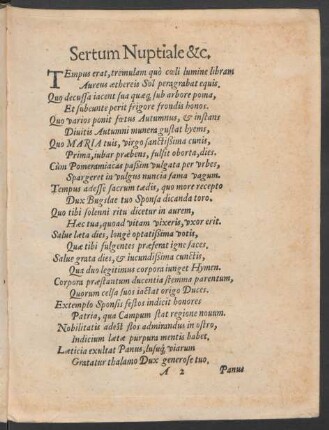 Sertum Nuptiale &c.
TEmpus erat, tremulam quò cœli lumine libram
Aureus æthereis Sol peragrabat equis.
Quo decussa iacent sua quæq; sub arbore poma,
Et subeunte perit frigore frondis honos.
Quo varios ponit fœtus Autumnus, & instans
Divitis Autumni munera gustat hyems,
Quo MARIA tuis, virgo sanctissima cunis,
Prima, iubar præbens, fulsit oborta, dies.
Cùm Pomeraniacas passim vulgata per vrbes,
Spargeret in vulgus nuncia fama vagum.
Tempus adesse sacrum tædis, quo more recepto
Dux Bugslae tuo Sponsa dicanda toro.
Quo tibi solenni ritu dicetur in aurem,
Hæc tua, quoad vitam vixeris, vxor erit.
Salue læta dies, longè optatissima votis,
Quæ tibi fulgentes præferat igne faces.
Salue grata dies, & iucundissima cunctis,
Quæ duo legitimus corpora iunget Hymen.
Corpora præstantum ducentia stemma parentum,
Quorum celsa suos iactat origo Duces.
Extemplo Sponsis festos indicit honores
Patria, qua Campum stat regione nouum.
Nobilitatis adest flos admirandus in ostro,
Indicium lætæ purpura mentis habet,
Læticia exultat Panus, lususq; viarum
Gratatur thalamo Dux generose tuo,
A 2 Panus